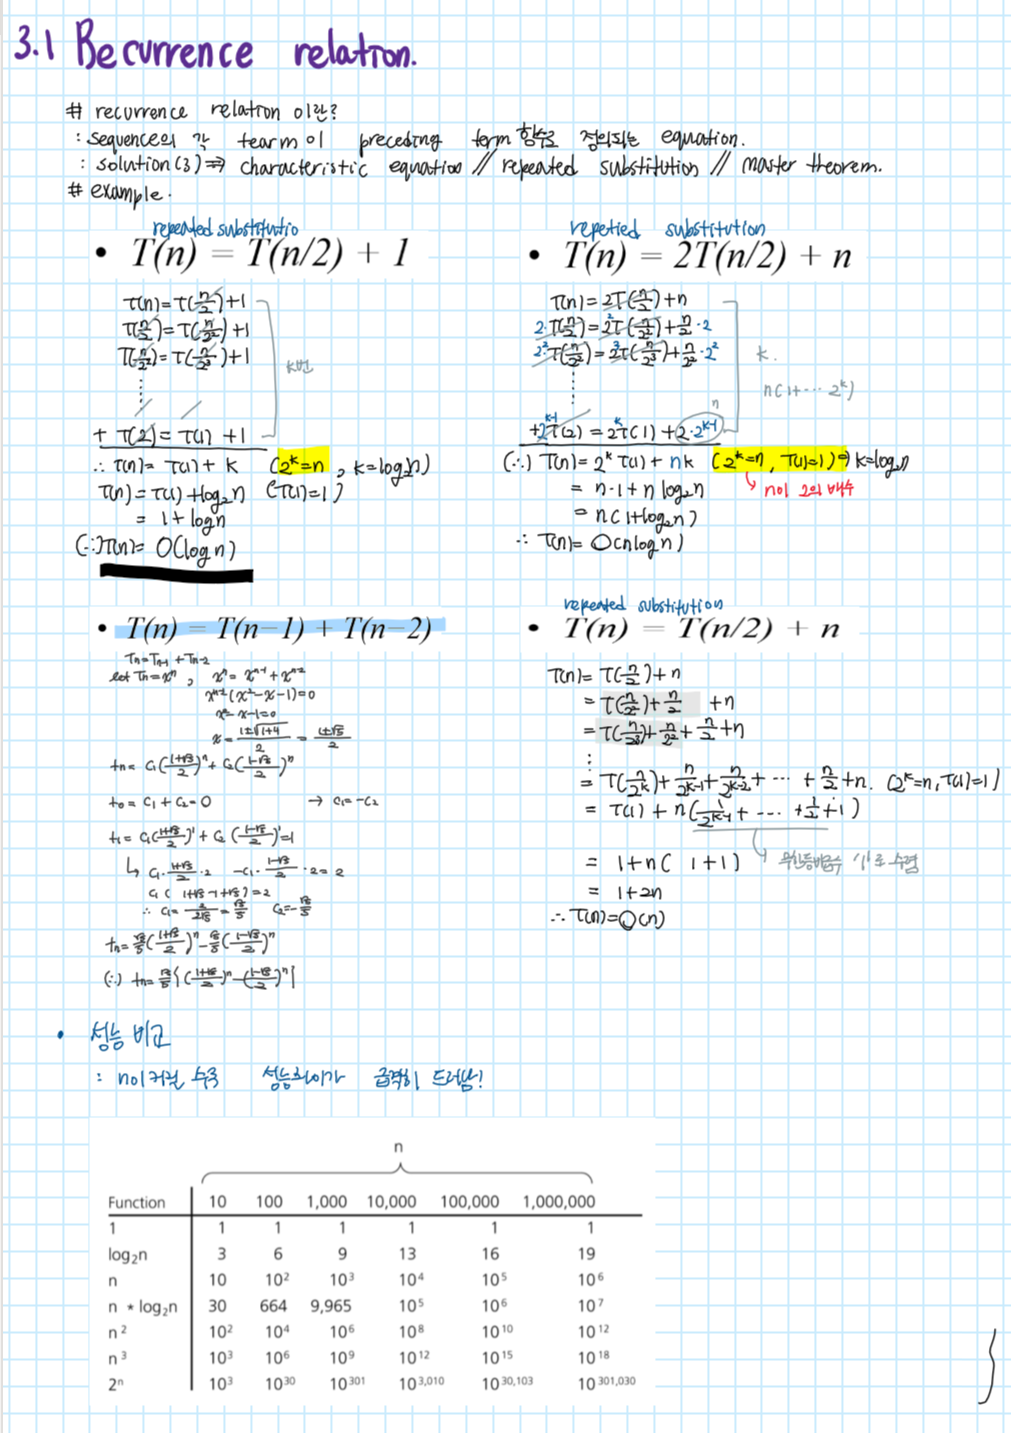 3.1 Recurrence relation.
# recurrence relation 이란?
: sequence의 각 tearm이 preceding term 함수로 정의되는 equation.
: solution(3) ⇒ characteristic equation // repeated substitution // master theorem.
# example.
repeated substitutio
• T(n) = T(n/2) + 1
T(n)=T(n/2)+1
T(n/2)=T(n/2²)+1
T(n/2²)=T(n/2³)+1
⋮
k번
+ T(2)=T(1)+1
∴ T(n)= T(1)+k (2^k=n, k=log₂n)
T(n)=T(1)+log₂n (∵T(1)=1)
= 1+logn
(∴)T(n)= O(logn)
repetied substitution
• T(n) = 2T(n/2) + n
T(n)=2T(n/2)+n
2·T(n/2)=2²T(n/2²)+n/2·2
2²·T(n/2²)=2³T(n/2³)+n/2²·2²
⋮
k.
n(1+⋯2^k)
n
+2^k-1T(2)=2^kT(1)+2·2^k-1
(∴) T(n)=2^kT(1)+nk (2^k=n, T(1)=1)⇒k=log₂n
n이 2의 배수
= n·1+n log₂n
= n(1+log₂n)
∴ T(n)=O(nlogn)
• T(n) = T(n−1) + T(n−2)
Tn=Tn-1+Tn-2
let Tn=xⁿ, xⁿ=xⁿ⁻¹+xⁿ⁻²
xⁿ⁻²(x²-x-1)=0
x²-x-1=0
x=(1±√1+4)/2=(1±√5)/2
tn=C₁((1+√5)/2)ⁿ+C₂((1-√5)/2)ⁿ
t₀=C₁+C₂=0 → C₁=-C₂
t₁=C₁((1+√5)/2)¹+C₂((1-√5)/2)¹=1
↳ C₁·(1+√5)/2·2 -C₁·(1-√5)/2·2=2
C₁(1+√5-1+√5)=2
∴ C₁=2/2√5=√5/5 C₂=-√5/5
tn=√5/5((1+√5)/2)ⁿ-√5/5((1-√5)/2)ⁿ
(∴) tn=√5/5{((1+√5)/2)ⁿ-((1-√5)/2)ⁿ}
repeated substitution
• T(n) = T(n/2) + n
T(n)=T(n/2)+n
=T(n/2²)+n/2+n
=T(n/2³)+n/2²+n/2+n
⋮
=T(n/2^k)+n/2^k-1+n/2^k-2+⋯+n/2+n. (2^k=n, T(1)=1)
=T(1)+n(1/2^k-1+⋯+1/2+1)
무한등비급수 '1'로 수렴
= 1+n(1+1)
= 1+2n
∴ T(n)=O(n)
• 성능 비교
: n이 커질 수록 성능차이가 급격히 드러남!
n
Function 10 100 1,000 10,000 100,000 1,000,000
1 1 1 1 1 1 1
log₂n 3 6 9 13 16 19
n 10 10² 10³ 10⁴ 10⁵ 10⁶
n * log₂n 30 664 9,965 10⁵ 10⁶ 10⁷
n² 10² 10⁴ 10⁶ 10⁸ 10¹⁰ 10¹²
n³ 10³ 10⁶ 10⁹ 10¹² 10¹⁵ 10¹⁸
2ⁿ 10³ 10³⁰ 10³⁰¹ 10^3,010 10^30,103 10^301,030